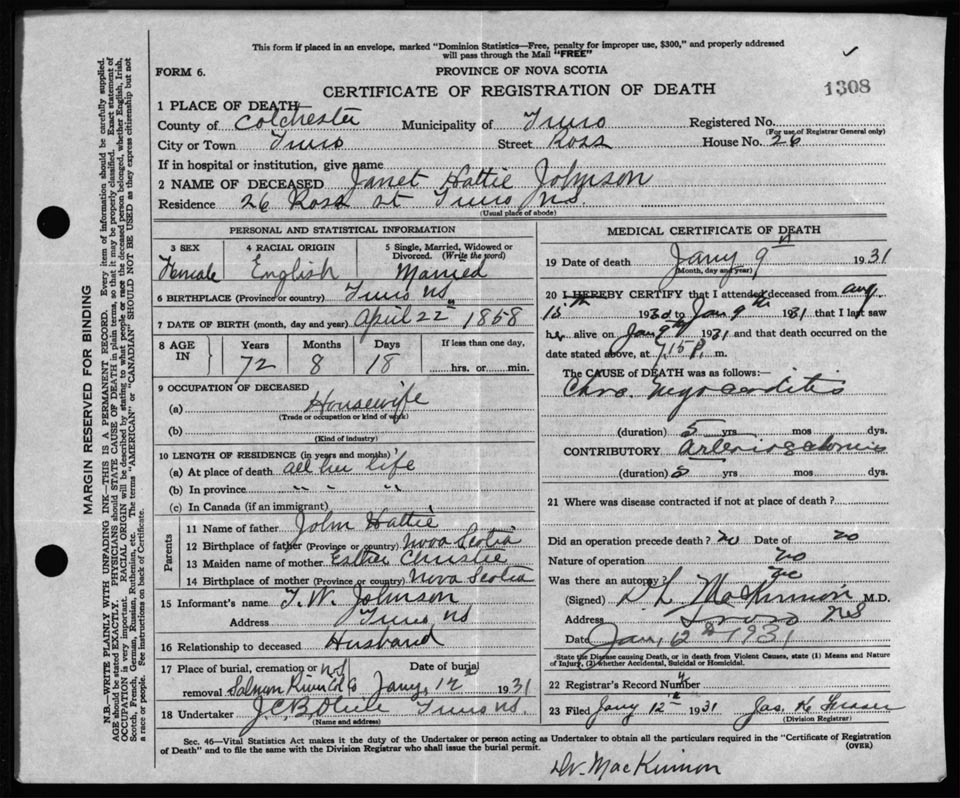 This form if placed in an envelope, marked "Dominion Statistics—Free, penalty for improper use, $300," and properly addressed
will pass through the Mail "FREE"
FORM 6. PROVINCE OF NOVA SCOTIA
CERTIFICATE OF REGISTRATION OF DEATH 1308
1 PLACE OF DEATH
County of Colchester Municipality of Truro Registered No.
(For use of Registrar General only)
City or Town Truro Street Ross House No. 26
If in hospital or institution, give name
2 NAME OF DECEASED Janet Hattie Johnson
Residence 26 Ross St Truro NS.
(Usual place of abode)
PERSONAL AND STATISTICAL INFORMATION
3 SEX 4 RACIAL ORIGIN 5 Single, Married, Widowed or
Divorced. (Write the word)
Female English Married
6 BIRTHPLACE (Province or country) Truro NS
7 DATE OF BIRTH (month, day and year) April 22nd 1858
8 AGE IN Years Months Days If less than one day,
72 8 18 hrs. or min.
9 OCCUPATION OF DECEASED
(a) Housewife
(Trade or occupation or kind of work)
(b)
(Kind of industry)
10 LENGTH OF RESIDENCE (in years and months)
(a) At place of death all her life
(b) In province " " "
(c) In Canada (if an immigrant)
Parents
11 Name of father John Hattie
12 Birthplace of father (Province or country) Nova Scotia
13 Maiden name of mother Esther Christie
14 Birthplace of mother (Province or country) Nova Scotia
15 Informant's name T. W. Johnson
Address Truro NS
16 Relationship to deceased Husband
17 Place of burial, cremation or Date of burial
removal Salmon River Jany. 12th 1931
18 Undertaker Truro NS.
(Name and address)
MEDICAL CERTIFICATE OF DEATH
19 Date of death Jany 9th 1931
(Month, day and year)
20 I HEREBY CERTIFY that I attended deceased from Aug
15th 1930 to Jan 9th 1931 that I last saw
her alive on Jan 9th 1931 and that death occurred on the
date stated above, at 7.15 P. m.
The CAUSE of DEATH was as follows:—
Chro. Myocarditis
(duration) 5 yrs mos dys.
CONTRIBUTORY Arteriosclerosis
(duration) 5 yrs mos dys.
21 Where was disease contracted if not at place of death?
Did an operation precede death? No Date of no
Nature of operation no
Was there an autopsy? no
(Signed) D L MacKinnon M.D.
Address Truro NS
Date Jan, 12th 1931
State the Disease causing Death, or in death from Violent Causes, state (1) Means and Nature
of Injury, (2) whether Accidental, Suicidal or Homicidal.
22 Registrar's Record Number
23 Filed Jany 12th 1931 Jas. K Fraser
(Division Registrar)
Sec. 46—Vital Statistics Act makes it the duty of the Undertaker or person acting as Undertaker to obtain all the particulars required in the "Certificate of Registration
of Death" and to file the same with the Division Registrar who shall issue the burial permit. (OVER)
Dr. MacKinnon
MARGIN RESERVED FOR BINDING
N.B.—WRITE PLAINLY WITH UNFADING INK—THIS IS A PERMANENT RECORD. Every item of information should be carefully supplied.
AGE should be stated EXACTLY. PHYSICIANS should STATE CAUSE OF DEATH in plain terms, so that it may be properly classified. Exact statement of
OCCUPATION is very important. RACIAL ORIGIN will be described by stating to what people or race the deceased person belonged, whether English, Irish,
Scotch, French, German, Russian, Ruthenian, etc. The terms "AMERICAN" or "CANADIAN" SHOULD NOT BE USED as they express citizenship but not
a race or people. See instructions on back of Certificate.